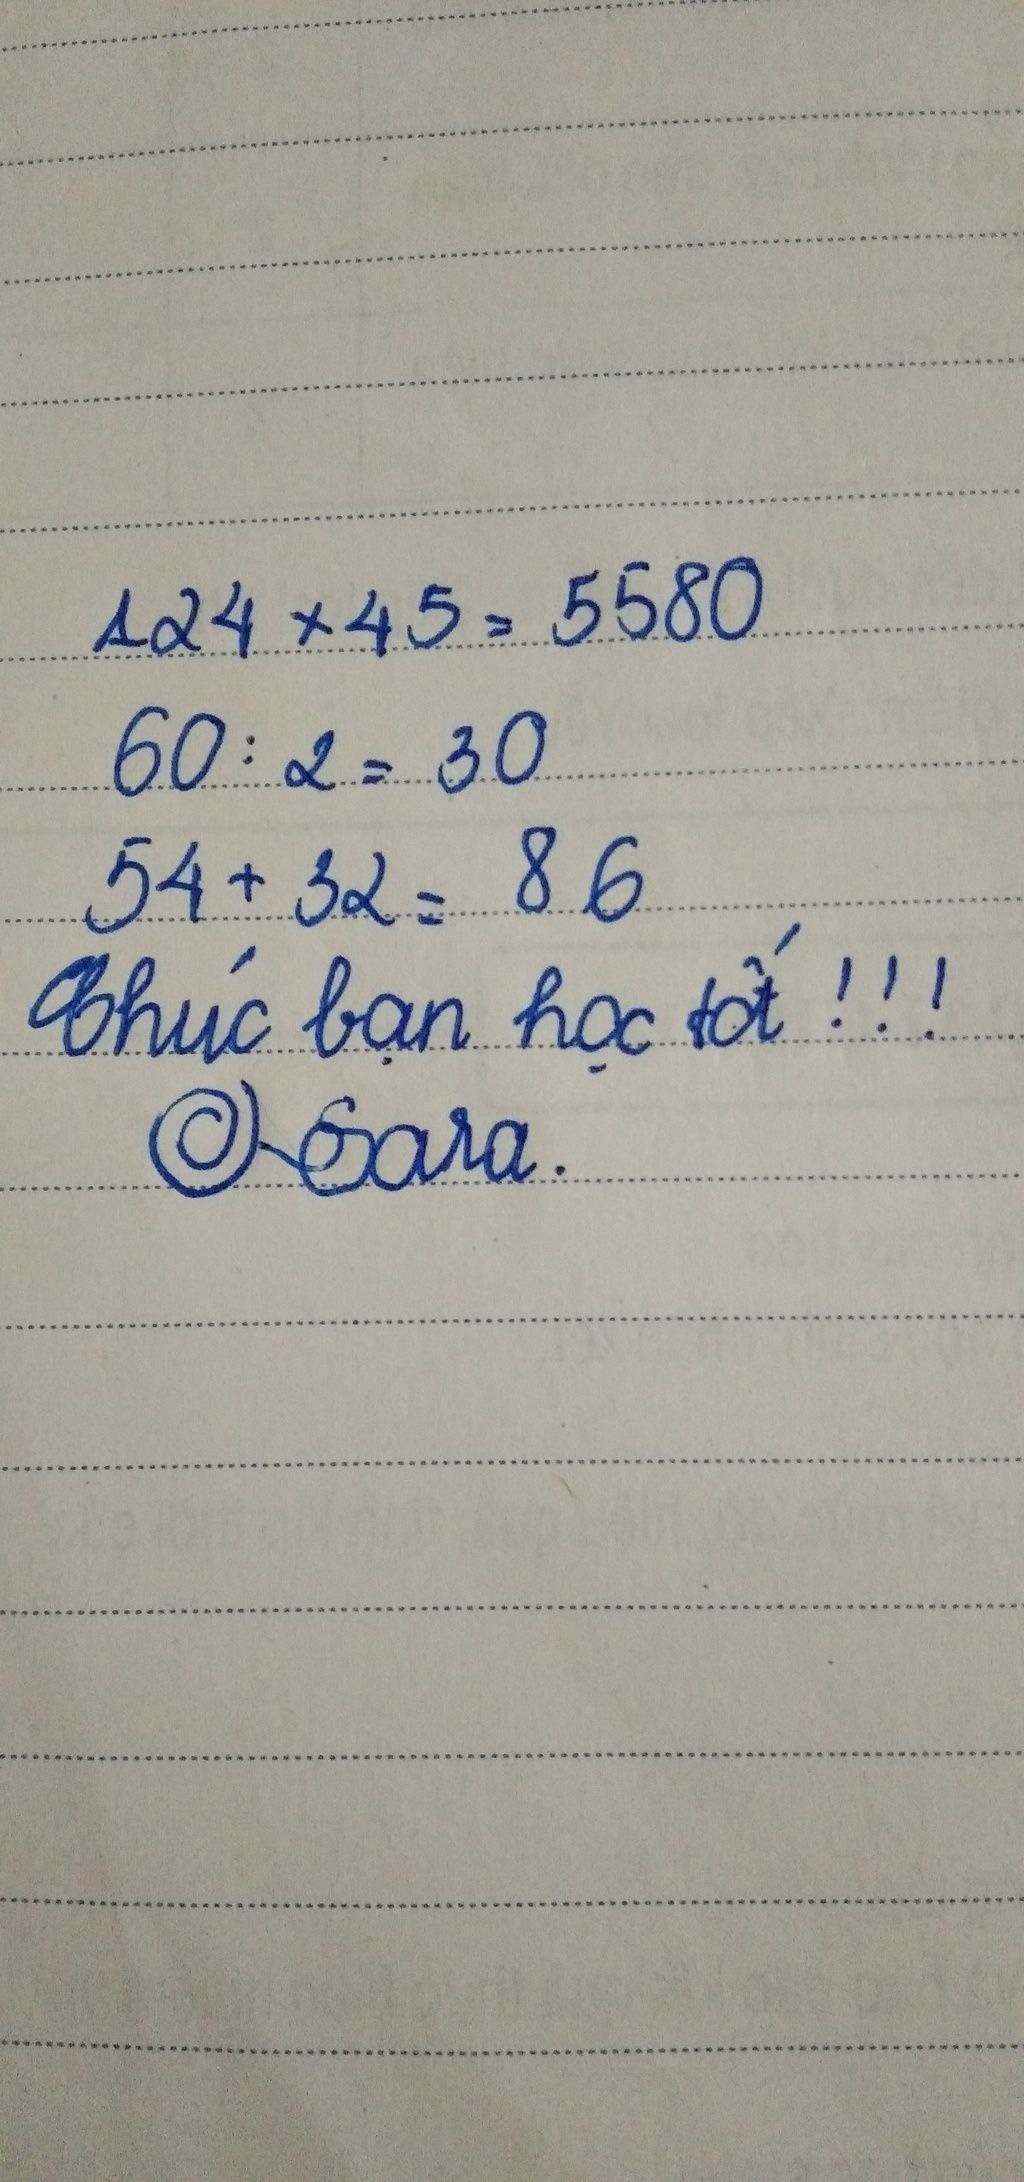 124 × 45 = 5580
60 : 2 = 30
54 + 32 = 86
Chúc bạn học tốt !!!
@ Sara.